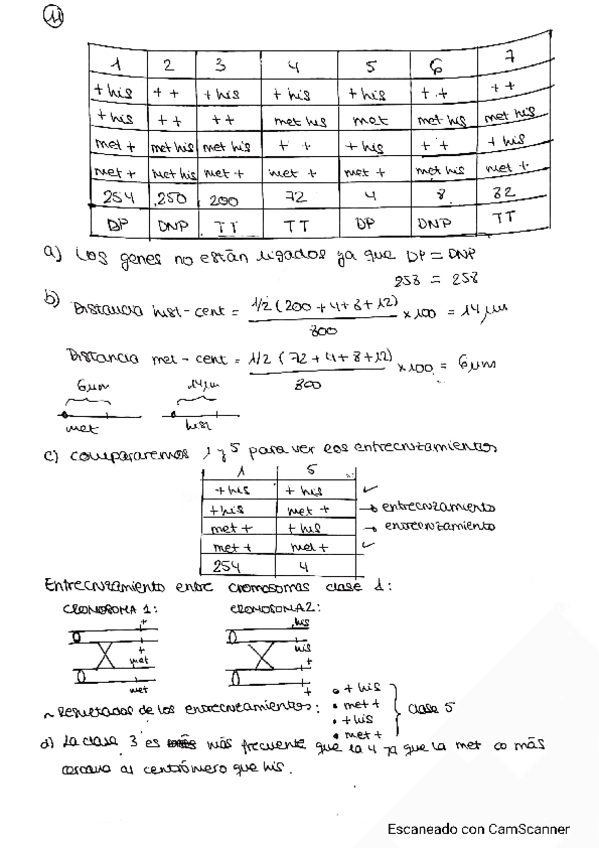 11
1 2 3 4 5 6 7
+ his ++ + his + his + his ++ ++
+ his ++ ++ met his met met his met his
met + met his met his ++ + his ++ + his
met + met his met + met + met + met his met +
254 250 200 72 4 8 32
DP DNP TT TT DP DNP TT
a) Los genes no están ligados ya que DP = DNP
258 = 258
b) Distancia his1 - cent = 1/2 (200 + 4 + 8 + 12) / 800 × 100 = 14 µm
Distancia met - cent = 1/2 (72 + 4 + 8 + 12) / 800 × 100 = 6 µm
6 µm 14 µm
met his1
c) compararemos 1 y 5 para ver los entrecruzamientos
1 5
+ his + his ✓
+ his met + → entrecruzamiento
met + + his → entrecruzamiento
met + met + ✓
254 4
Entrecruzamiento entre cromosomas clase 1:
CROMOSOMA 1: CROMOSOMA 2:
+ his
+ his
met +
met +
~ Resultados de los entrecruzamientos: • + his
• met +
• + his
• met +
clase 5
d) La clase 3 es más frecuente que la 4 ya que la met es más
cercana al centrómero que his.
Escaneado con CamScanner